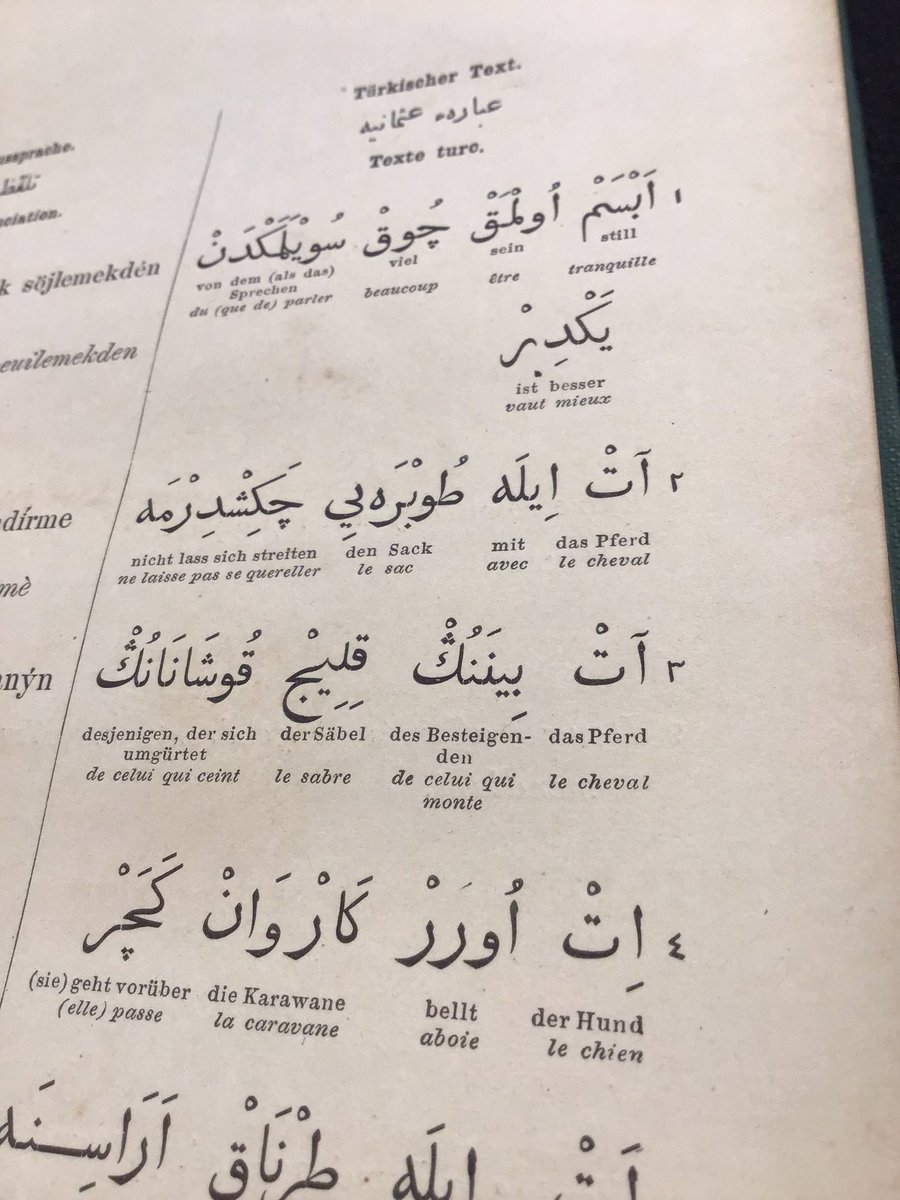 ussprache.
تلفظ
nciation.
k söjlemekdén
euïlemekden
dírme
mè
nýn
Türkischer Text.
عباره‌ء عثمانیه
Texte turc.
١ اَبْسَمْ اُولْمَقْ چُوقْ سُويْلَمَكْدَنْ
von dem (als das) viel sein still
Sprechen
du (que de) parler beaucoup être tranquille
يَكْدِرْ
ist besser
vaut mieux
٢ آتْ اِيلَه طُوبْرَه‌يِي چَكِشْدِرْمَه
nicht lass sich streiten den Sack mit das Pferd
ne laisse pas se quereller le sac avec le cheval
٣ آتْ بِينَنُڭْ قِلِيجْ قُوشَانَانُڭْ
desjenigen, der sich der Säbel des Besteigen- das Pferd
umgürtet den
de celui qui ceint le sabre de celui qui le cheval
monte
٤ اِتْ اُورَرْ كَارْوَانْ كَچَرْ
(sie) geht vorüber die Karawane bellt der Hund
(elle) passe la caravane aboie le chien
اَتْ اِيلَه طِرْنَاقْ اَرَاسِنَه